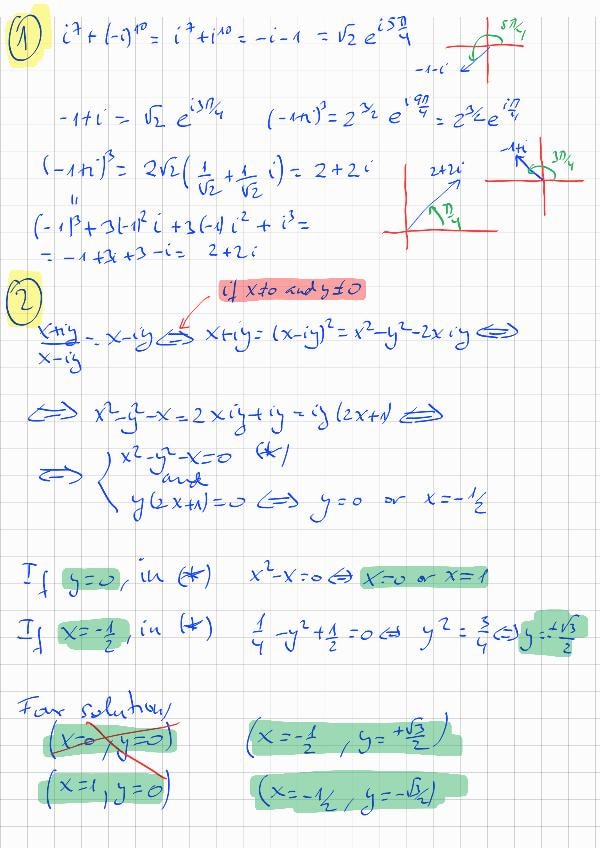 1 i⁷ + (-i)¹⁰ = i⁷ + i¹⁰ = -i - 1 = √2 e^{i5π/4}
5π/4
-1-i
-1+i = √2 e^{i3π/4} (-1+i)³ = 2^{3/2} e^{i9π/4} = 2^{3/2} e^{iπ/4}
(-1+i)³ = 2√2 (1/√2 + 1/√2 i) = 2+2i
2+2i
π/4
-1+i
3π/4
=
(-1)³ + 3(-1)² i + 3(-1) i² + i³ =
= -1 + 3i + 3 - i = 2+2i
2 if x≠0 and y≠0
x+iy/x-iy = x-iy ⟺ x+iy = (x-iy)² = x² - y² - 2xiy ⟺
⟺ x² - y² - x = 2xiy + iy = iy(2x+1) ⟺
⟺ { x² - y² - x = 0 (*)
and
y(2x+1) = 0 ⟺ y=0 or x=-1/2
If y=0, in (*) x² - x = 0 ⟺ x=0 or x=1
If x=-1/2, in (*) 1/4 - y² + 1/2 = 0 ⟺ y² = 3/4 ⟺ y=±√3/2
Four solutions
(x=0, y=0) (x=-1/2, y=+√3/2)
(x=1, y=0) (x=-1/2, y=-√3/2)